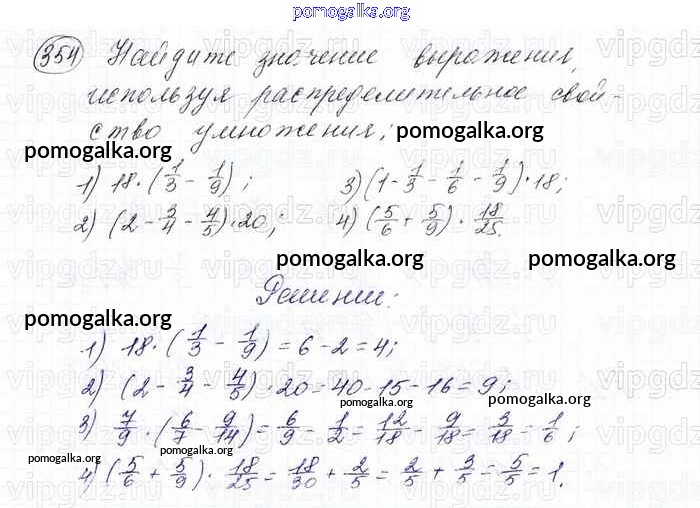 pomogalka.org
354 Найдите значение выражения,
используя распределительное свой-
ство умножения:
pomogalka.org
pomogalka.org
1) 18·(1/3 - 1/9); 3) (1 - 1/3 - 1/6 - 1/9)·18;
2) (2 - 3/4 - 4/5)·20; 4) (5/6 + 5/9)·18/25.
pomogalka.org pomogalka.org
Решение:
pomogalka.org
1) 18·(1/3 - 1/9) = 6 - 2 = 4;
2) (2 - 3/4 - 4/5)·20 = 40 - 15 - 16 = 9;
pomogalka.org pomogalka.org
3) 7/9·(6/7 - 9/14) = 6/9 - 1/2 = 12/18 - 9/18 = 3/18 = 1/6;
pomogalka.org
4) (5/6 + 5/9)·18/25 = 18/30 + 2/5 = 2/5 + 3/5 = 5/5 = 1.
pomogalka.org